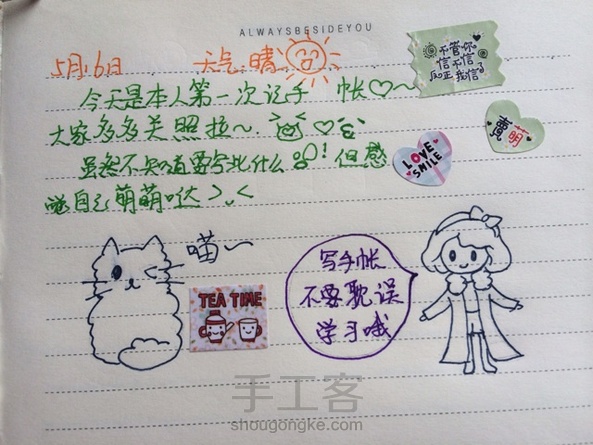 ALWAYSBESIDEYOU
5月16日 天气:晴
今天是本人第一次记手帐♡~
大家多多关照拉~
虽然不知道要写些什么!但感
觉自己萌萌哒>.<
不管你
信不信
反正我信了
萌
LOVE
SMILE
喵~
TEA TIME
写手帐
不要耽误
学习哦
手工客
shougongke.com